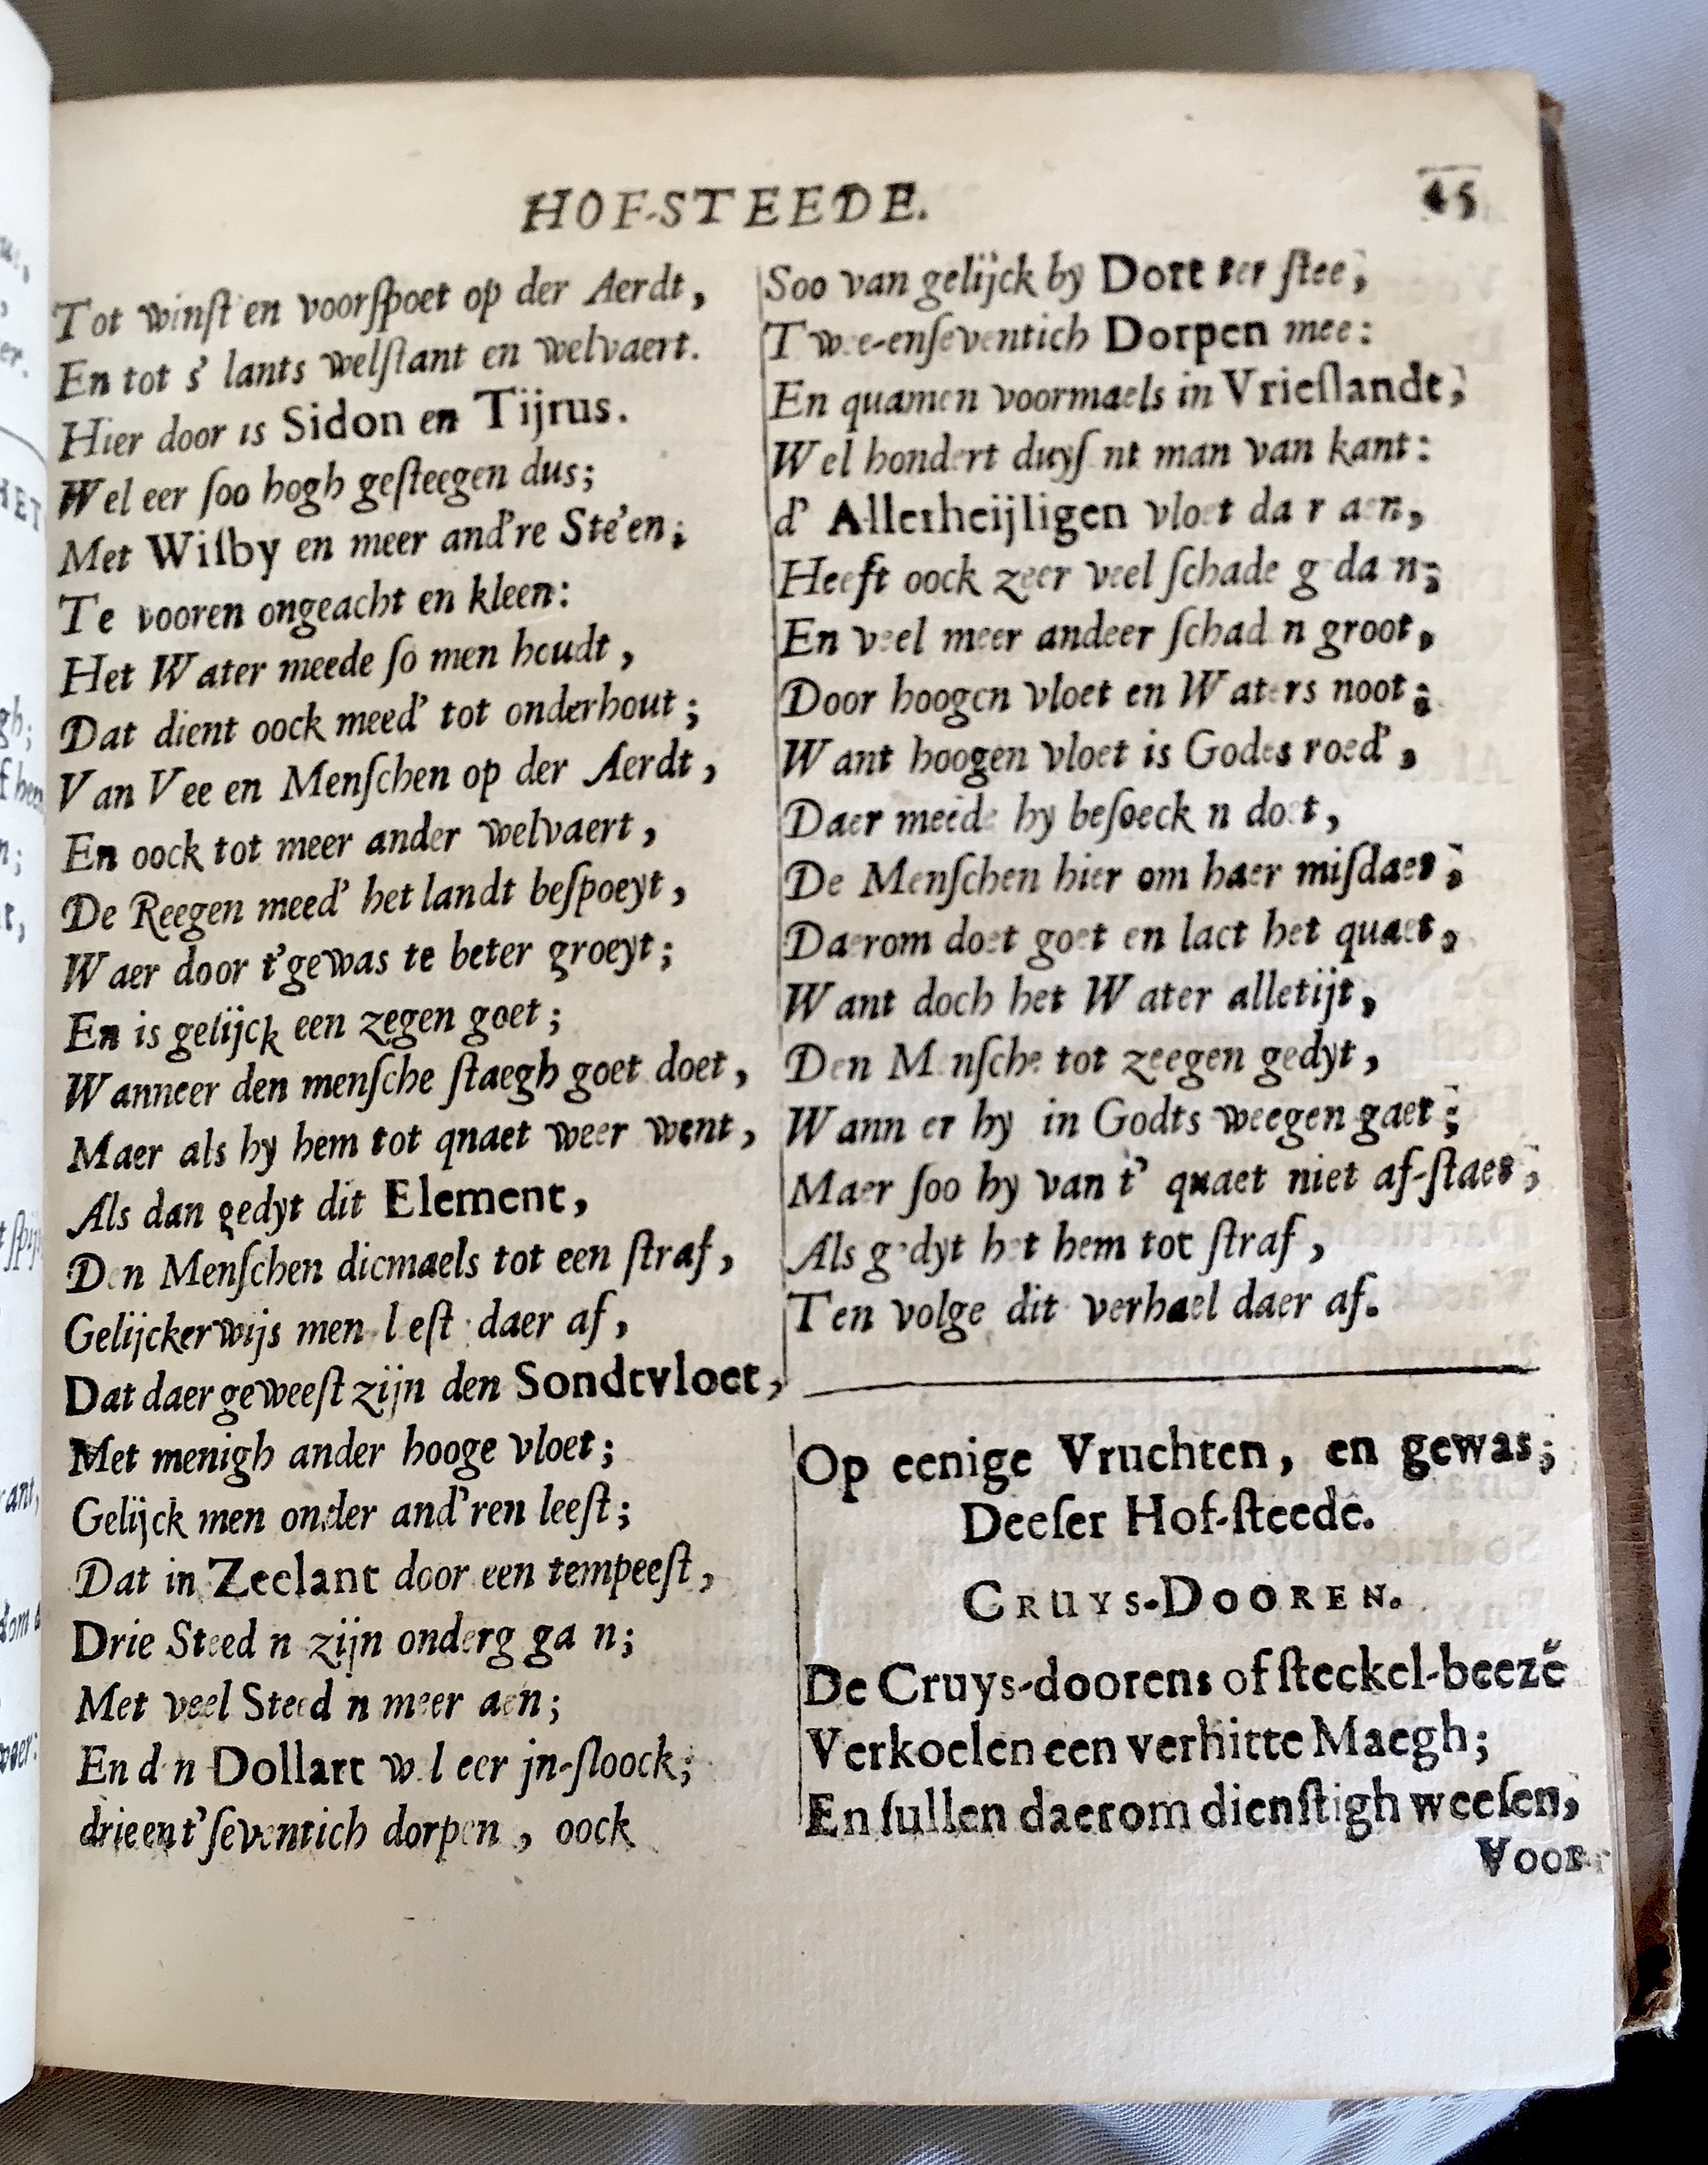 HOF-STEEDE.
45
Tot winſt en voorſpoet op der Aerdt,
En tot s' lants welſtant en welvaert.
Hier door is Sidon en Tijrus.
Wel eer ſoo hogh geſteegen dus;
Met Wiſby en meer and're Ste'en;
Te vooren ongeacht en kleen:
Het Water meede ſo men houdt,
Dat dient oock meed' tot onderhout;
Van Vee en Menſchen op der Aerdt,
En oock tot meer ander welvaert,
De Reegen meed' het landt beſpoeyt,
Waer door t'gewas te beter groeyt;
En is gelijck een zegen goet;
Wanneer den menſche ſtaegh goet doet,
Maer als hy hem tot qnaet weer went,
Als dan gedyt dit Element,
Den Menſchen dicmaels tot een ſtraf,
Gelijckerwijs men l eſt daer af,
Dat daer geweeſt zijn den Sondtvloet,
Met menigh ander hooge vloet;
Gelijck men onder and'ren leeſt;
Dat in Zeelant door een tempeeſt,
Drie Steed n zijn onderg ga n;
Met veel Steed n meer aen;
En d n Dollart w l eer jn-ſloock;
drie en t'ſeventich dorpen, oock
Soo van gelijck by Dort ter ſtee;
Twee-enſeventich Dorpen mee:
En quamen voormaels in Vrieſlandt;
Wel hondert duyſ nt man van kant:
d' Allerheijligen vloet da r aen,
Heeft oock zeer veel ſchade g da n;
En veel meer andeer ſchad n groot,
Door hoogen vloet en Waters noot;
Want hoogen vloet is Godes roed',
Daer meede hy beſoeck n doet,
De Menſchen hier om haer miſdaet;
Daerom doet goet en lact het quaet,
Want doch het Water alletijt,
Den M nſche tot zeegen gedyt,
Wann er hy in Godts weegen gaet;
Maer ſoo hy van t' quaet niet af-ſtaet;
Als gedyt het hem tot ſtraf,
Ten volge dit verhael daer af.
Op eenige Vruchten, en gewas;
Deeſer Hof-ſteede.
CRUYS-DOOREN.
De Cruys-doorens of ſteckel-beezē
Verkoelen een verhitte Maegh;
En ſullen daerom dienſtigh weeſen,
Voor